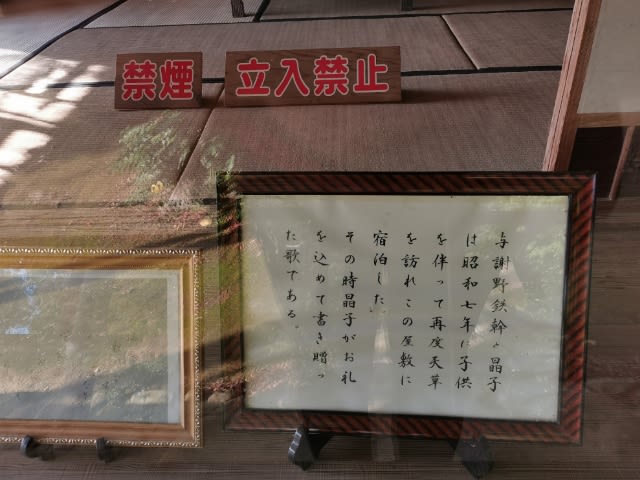 禁煙
立入禁止
与謝野鉄幹と晶子
は昭和七年に子供
を伴って再度天草
を訪れこの屋敷に
宿泊した。
その時晶子がお礼
を込めて書き贈っ
た歌である。